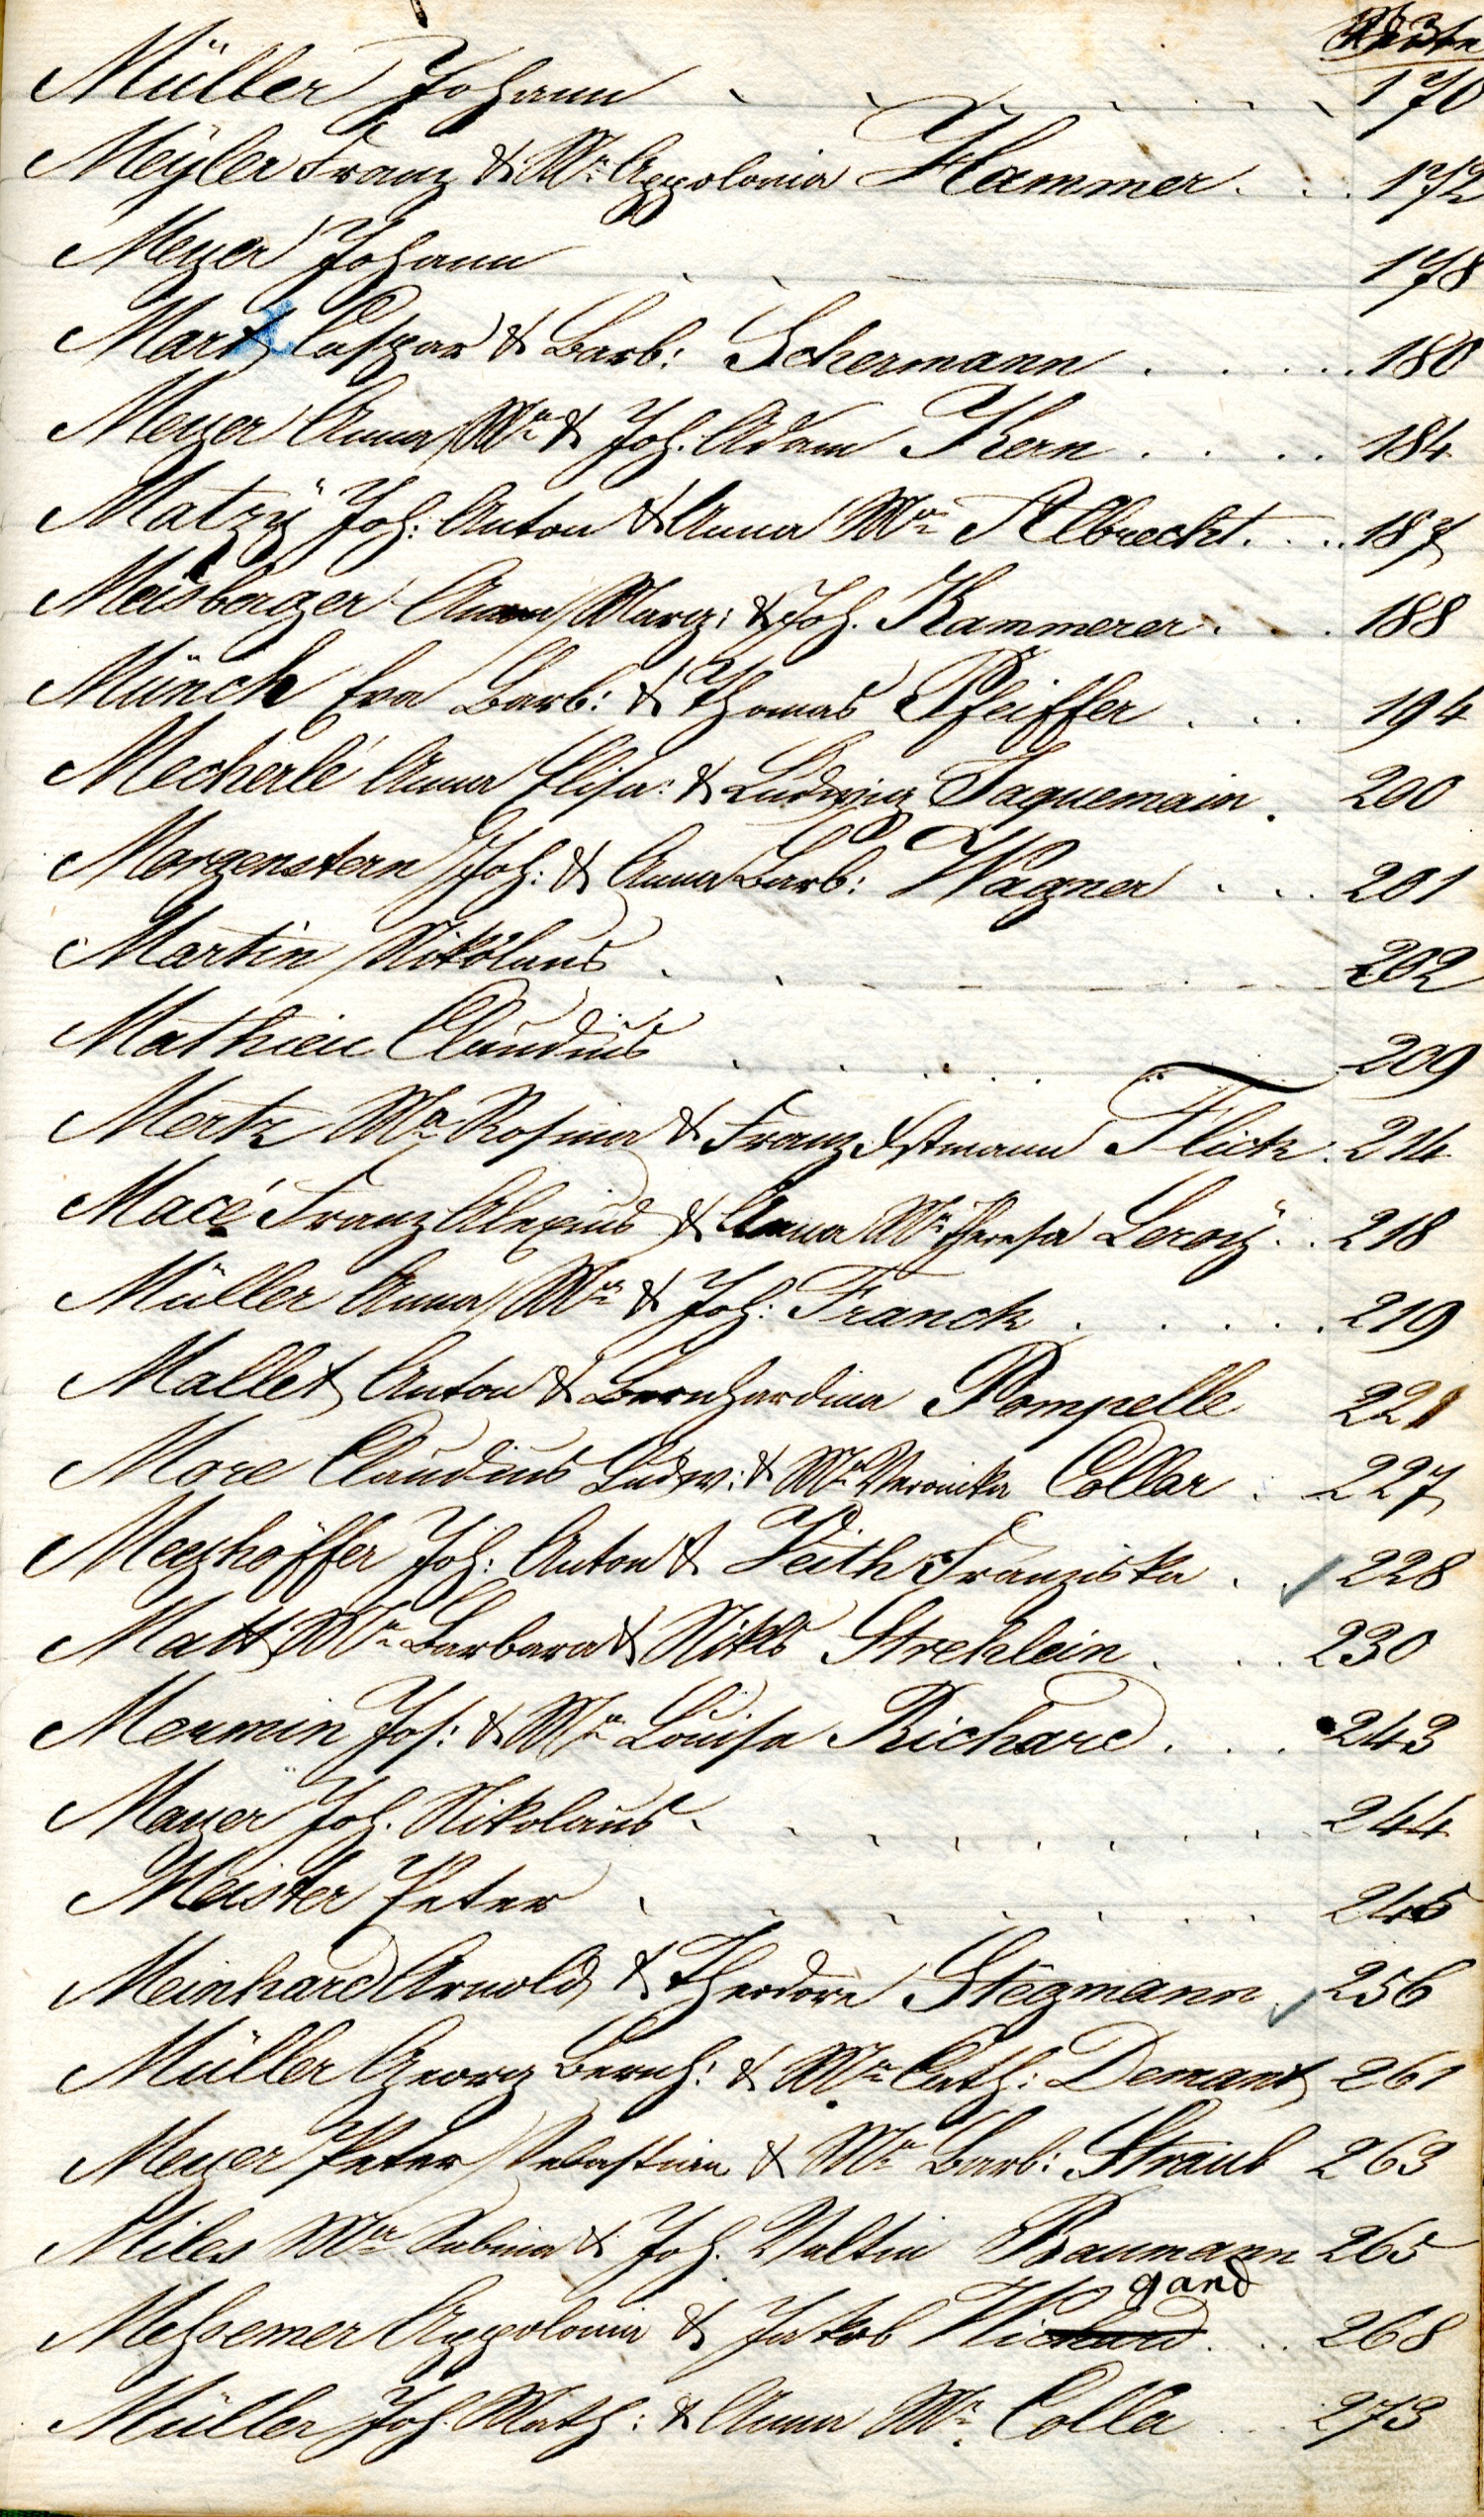 Müller Johann . . . . . 170
Meÿler Franz & Mª Appolonia Hammer . . . 172
Meyer Johann . . 178
Martz Caspar & Barb: Schermann . . . . . 180
Meyer Anna Mª & Joh. Adam Kern . . . . 184
Matzÿ Joh: Anton & Anna Mª Albrecht . . . 187
Meisberger Anna Marg: & Joh. Kammerer . . . 188
Münch Eva Barb: & Thomas Pfeiffer . . . 194
Mecherlé Anna Elisa: & Ludwig Jaquemain . 200
Morgenstern Joh: & Anna Barb: Wagner . . . 201
Martin Nikolaus . . . 202
Mathieu Claudius . . . . . 209
Mertz Mª Rosina & Franz Chrstmann Flick . 214
Macé Franz Alexius & Anna Mª Theresa Leroÿ . . 218
Müller Anna Mª & Joh: Franck . . . . . 219
Mallet Anton & Bernhardina Pompelle 221
More Claudius Ludw: & Mª Veronika Collar . 227
Meeshöffer Joh: Anton & Veith Franziska . . 228
Matt Mª Barbara & Nikls Strehlein . . . 230
Mermin Jos: & Mª Louisa Richard . . . 243
Mayer Joh. Nikolaus . . . . . . . 244
Meister Peter . . . . . . 245
Meinhard Arnold & Theodora Stegmann . 256
Müller Georg Bernh: & Mª Cath: Demant 261
Meyer Peter Sebastian & Mª Barb: Straub 263
Miles Mª Sabina & Joh. Valtin Baumann 265
gand
Messemer Appolonia & Jakob Wichard . . . 268
Müller Joh. Math: & Anna Mª Colla . . . 273